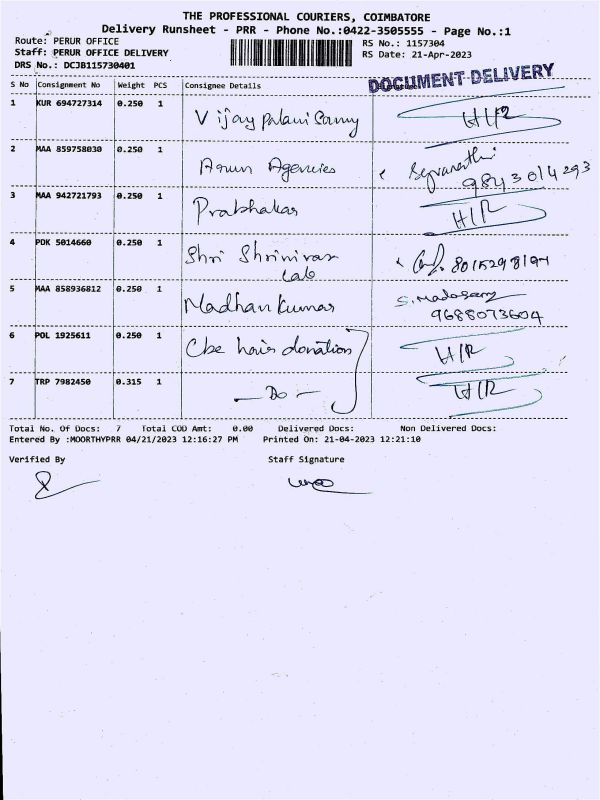 THE PROFESSIONAL COURIERS, COIMBATORE
Delivery Runsheet - PRR - Phone No.:0422-3505555 - Page No.:1
Route: PERUR OFFICE RS No.: 1157304
Staff: PERUR OFFICE DELIVERY RS Date: 21-Apr-2023
DRS No.: DCJB115730401
DOCUMENT DELIVERY
S No Consignment No Weight PCS Consignee Details
1 KUR 694727314 0.250 1 Vijay Palani Samy H/R
2 MAA 859758030 0.250 1 Arun Agencies
9843014293
3 MAA 942721793 0.250 1 Prabhakar H/R
4 PDK 5014660 0.250 1 Shri Shrinivas
Lab 8015298194
5 MAA 858936812 0.250 1 Madhan Kumar S. Madasamy
9688073604
6 POL 1925611 0.250 1 Cbe hair donation H/R
7 TRP 7982450 0.315 1 — Do — H/R
Total No. Of Docs: 7 Total COD Amt: 0.00 Delivered Docs: Non Delivered Docs:
Entered By :MOORTHYPRR 04/21/2023 12:16:27 PM Printed On: 21-04-2023 12:21:10
Verified By Staff Signature